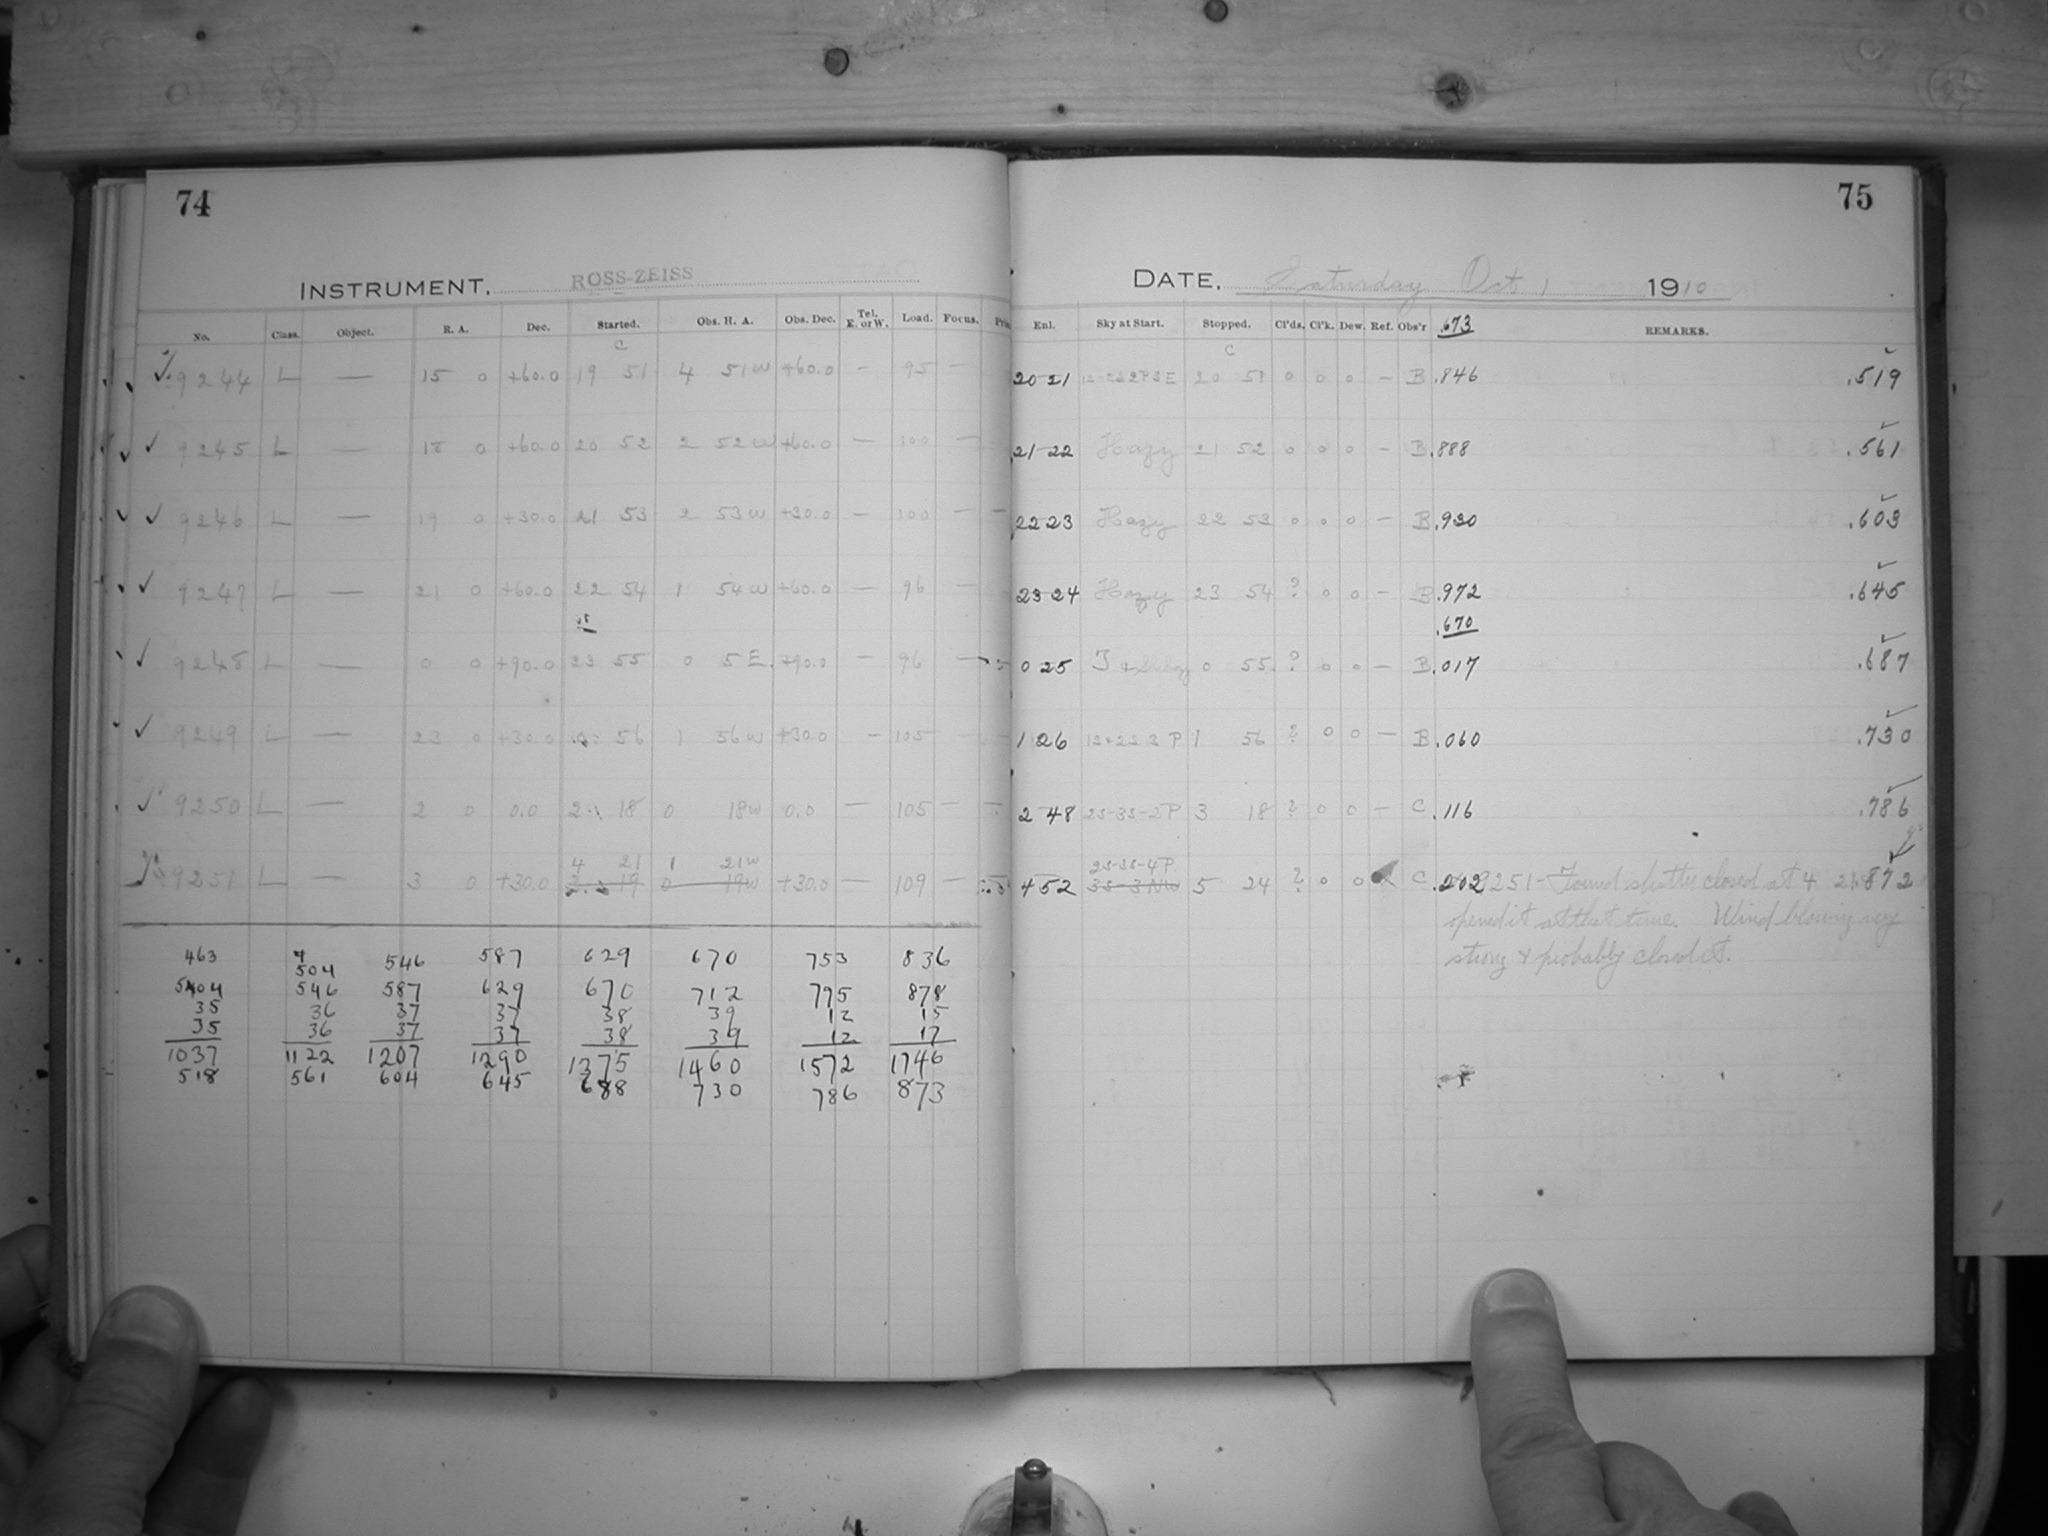 74
75
INSTRUMENT, ROSS-ZEISS
DATE, Saturday Oct 1 1910
No. Class. Object. R. A. Dec. Started. Obs. H. A. Obs. Dec. Tel. E. or W. Load. Focus. Enl. Sky at Start. Stopped. Cl'ds. Cl'k. Dew. Ref. Obs'r .673 REMARKS.
C C
✓ 9244 L — 15 0 +60.0 19 51 4 51w +60.0 — 95 — 20 21 20 51 0 0 0 — B .846 .519
✓ 9245 L — 18 0 +60.0 20 52 2 52w +60.0 — 100 — 21 22 Hazy 21 52 0 0 0 — B .888 .561
✓ 9246 L — 19 0 +30.0 21 53 2 53w +30.0 — 100 — 22 23 Hazy 22 53 0 0 0 — B .930 .603
✓ 9247 L — 21 0 +60.0 22 54 1 54w +60.0 — 96 — 23 24 Hazy 23 54 ? 0 0 — B .972 .645
.670
✓ 9248 L — 0 0 +90.0 23 55 0 5 E. +90.0 — 96 — 0 25 0 55 ? 0 0 — B .017 .687
✓ 9249 L — 23 0 +30.0 0 56 1 56w +30.0 — 105 — 1 26 1 56 ? 0 0 — B .060 .730
✓ 9250 L — 2 0 0.0 2 18 0 18w 0.0 — 105 — 2 48 2S-3S-2P 3 18 ? 0 0 — C .116 .786
4 21 1 21w 2S-3S-4P
9251 L — 3 0 +30.0 3 19 0 19w +30.0 — 109 — 4 52 3S-3NW 5 24 ? 0 0 C .202 9251-Found shutter closed at 4 21 .872
opened it at that time. Wind blowing very
strong & probably closed it.
463 4 546 587 629 670 753 836
504
5404 546 587 629 670 712 795 878
35 36 37 37 38 39 12 15
35 36 37 37 38 39 12 17
1037 1122 1207 1290 1375 1460 1572 1746
518 561 604 645 688 730 786 873